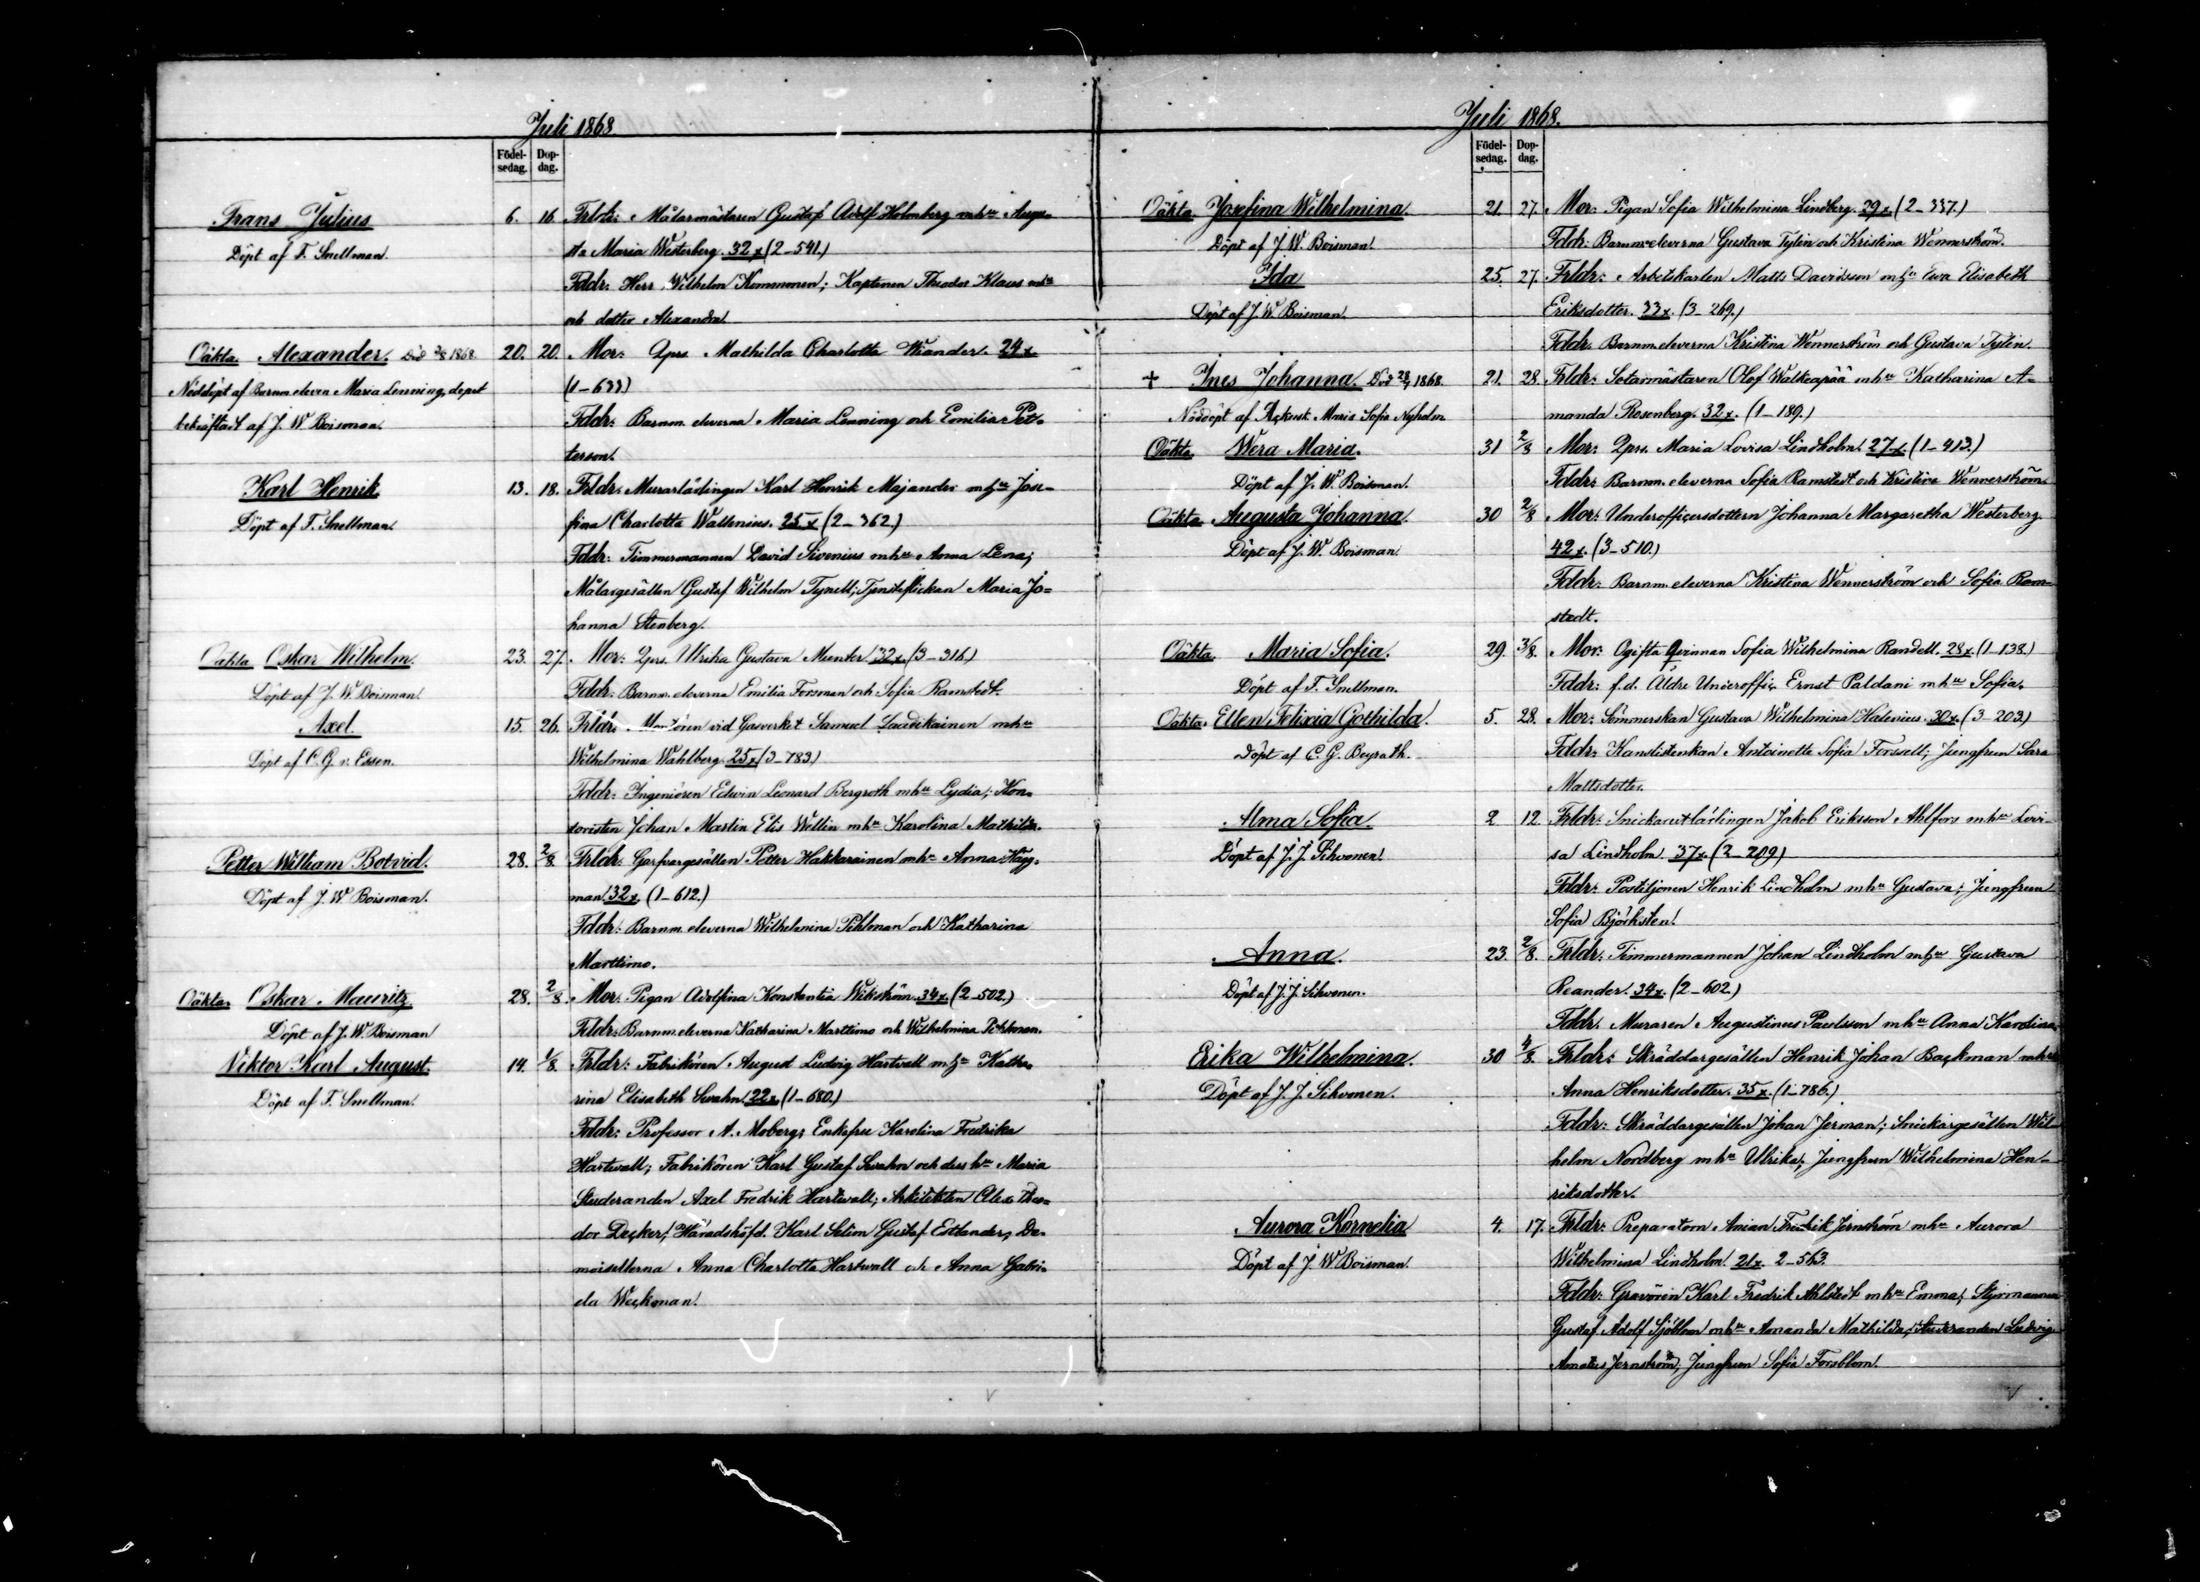 Juli 1868
Födel-sedag. Dop-dag.
Frans Julius 6. 16. Frldr: Målarmästaren Gustaf Adolf Holmberg mhu Augu-
Döpt af F. Snellman. sta Maria Westerberg. 32 x (2-541.)
Fddr: Herr Wilhelm Kommonen; Kaptenen Theodor Klaus mhu
och dotter Alexandra.
Oäkta. Alexander. Död 1868. 20. 20. Mor: Qprs Mathilda Charlotta Wiander. 24 x
Nöddöpt af Barnm. eleven Maria Lenning, dopet (1-633)
bekräftadt af J. W. Boisman. Fddr: Barnm. eleverna Maria Lenning och Emilia Pet-
terson.
Karl Henrik 13. 18. Frldr: Murarlärlingen Karl Henrik Majander mhu Jose-
Döpt af F. Snellman. fina Charlotta Wallenius. 25 x (2-362.)
Fddr: Timmermannen David Sivenius mhu Anna Lena;
Målargesällen Gustaf Wilhelm Tynell; Tjensteflickan Maria Jo-
hanna Stenberg.
Oäkta Oskar Wilhelm. 23. 27. Mor: Qprs. Ulrika Gustava Munter 32 x. (3-316.)
Döpt af J. W. Boisman. Fddr: Barnm. eleverna Emilia Forsman och Sofia Ramstedt.
Axel. 15. 26. Frldr: Montören vid Gasverket Samuel Laudikainen mhu
Döpt af C. G. v. Essen. Wilhelmina Wahlberg. 25 x (3-783)
Fddr: Ingeniören Edwin Leonard Bergroth mhu Lydia; Kon-
toristen Johan Martin Elis Wellin mhu Karolina Mathilda.
Petter William Botvid. 28. 2/8. Frldr: Garfvargesällen Petter Hakkarainen mhu Anna Hägg-
Döpt af J. W. Boisman. man 32 x. (1-612.)
Fddr: Barnm. eleverna Wilhelmina Pihlman och Katharina
Marttimo.
Oäkta. Oskar Mauritz 28. 2/8 Mor. Pigan Adolfina Konstantia Wikström 34 x. (2-502.)
Döpt af J. W. Boisman Fddr: Barnm. eleverna Katharina Marttimo och Wilhelmina
Viktor Karl August. 14. 1/8. Frldr: Fabrikören August Ludvig Hartwall mhu Katha-
Döpt af F. Snellman. rina Elisabeth Swahn. 22 x (1-680.)
Fddr: Professor A. Moberg; Enkefru Karolina Fredrika
Hartwall; Fabrikören Karl Gustaf Swahn och dess hu Maria
Studeranden Axel Fredrik Hartwall; Arkitekten Alex. Theo-
dor Decker; Häradshöfd. Karl Selim Gustaf Estlander; De-
moisellerna Anna Charlotta Hartwall och Anna Gabri-
ela Weckman.
Juli 1868.
Födel-sedag. Dop-dag.
Oäkta Josefina Wilhelmina. 21. 27. Mor: Pigan Sofia Wilhelmina Lindberg. 29 x. (2-337.)
Döpt af J. W. Boisman. Fddr: Barnm. eleverna Gustava Tylin och Kristina Wennerström.
Ida 25. 27. Frldr: Arbetskarlen Matts Davidsson mhu Eva Elisabeth
Döpt af J. W. Boisman. Eriksdotter. 33 x. (3-269.)
Fddr. Barnm. eleverna Kristina Wennerström och Gustava Tylin.
+ Ines Johanna. Död 28/7 1868. 21. 28. Frldr: Sotarmästaren Olof Walkeapää mhu Katharina A-
Nöddöpt af Ackusk. Maria Sofia Nyholm. manda Rosenberg. 32 x. (1-189.)
Oäkta. Wera Maria. 31 2/8 Mor: Qprs. Maria Lovisa Lindholm. 27 x (1-413.)
Döpt af J. W. Boisman. Fddr: Barnm. eleverna Sofia Ramstedt och Kristina Wennerström.
Oäkta Augusta Johanna. 30 2/8 Mor: Underofficersdottern Johanna Margaretha Westerberg.
Döpt af J. W. Boisman 42 x. (3-510.)
Fddr: Barnm. eleverna Kristina Wennerström och Sofia Ram-
stedt.
Oäkta. Maria Sofia. 29. 3/8. Mor: Ogifta Qvinnan Sofia Wilhelmina Randell. 28 x. (1-138.)
Döpt af F. Snellman. Fddr: f.d. Äldre Underoffic. Ernst Paldani mhu Sofia.
Oäkta. Ellen Felixia Gothilda. 5. 28. Mor: Sömmerskan Gustava Wilhelmina Halenius. 30 x. (3-203.)
Döpt af C. G. Beyrath. Fddr: Kanslistenkan Antoinette Sofia Forssell; Jungfrun Sara
Mattsdotter.
Alma Sofia. 2 12 Frldr: Snickarelärlingen Jakob Eriksson Ahlfors mhu Lovi-
Döpt af J. J. Sihvonen. sa Lindholm. 37 x. (2-209)
Fddr: Postiljonen Henrik Lindholm mhu Gustava; Jungfrun
Sofia Björksten.
Anna. 23. 2/8. Frldr: Timmermannen Johan Lindholm mhu Gustava
Döpt af J. J. Sihvonen. Reander. 34 x. (2-602.)
Fddr. Muraren Augustinus Paulsson mhu Anna Karolina.
Erika Wilhelmina. 30 4/8. Frldr: Skräddargesällen Henrik Johan Backman mhu
Döpt af J. J. Sihvonen. Anna Henriksdotter. 35 x. (1-786.)
Fddr: Skräddargesällen Johan Jerman; Snickargesällen Wil-
helm Nordberg mhu Ulrika; Jungfrun Wilhelmina Hen-
riksdotter.
Aurora Kornelia 4. 17. Frldr: Preparatorn Anian Fredrik Jernström mhu Aurora
Döpt af J. W. Boisman. Wilhelmina Lindholm. 21 x. 2-563.
Fddr: Gravören Karl Fredrik Ahlstedt mhu Emma; Styrmannen
Gustaf Adolf Sjöblom mhu Amanda Mathilda; Studeranden Ludvig
Amatus Jernström; Jungfrun Sofia Forsblom.